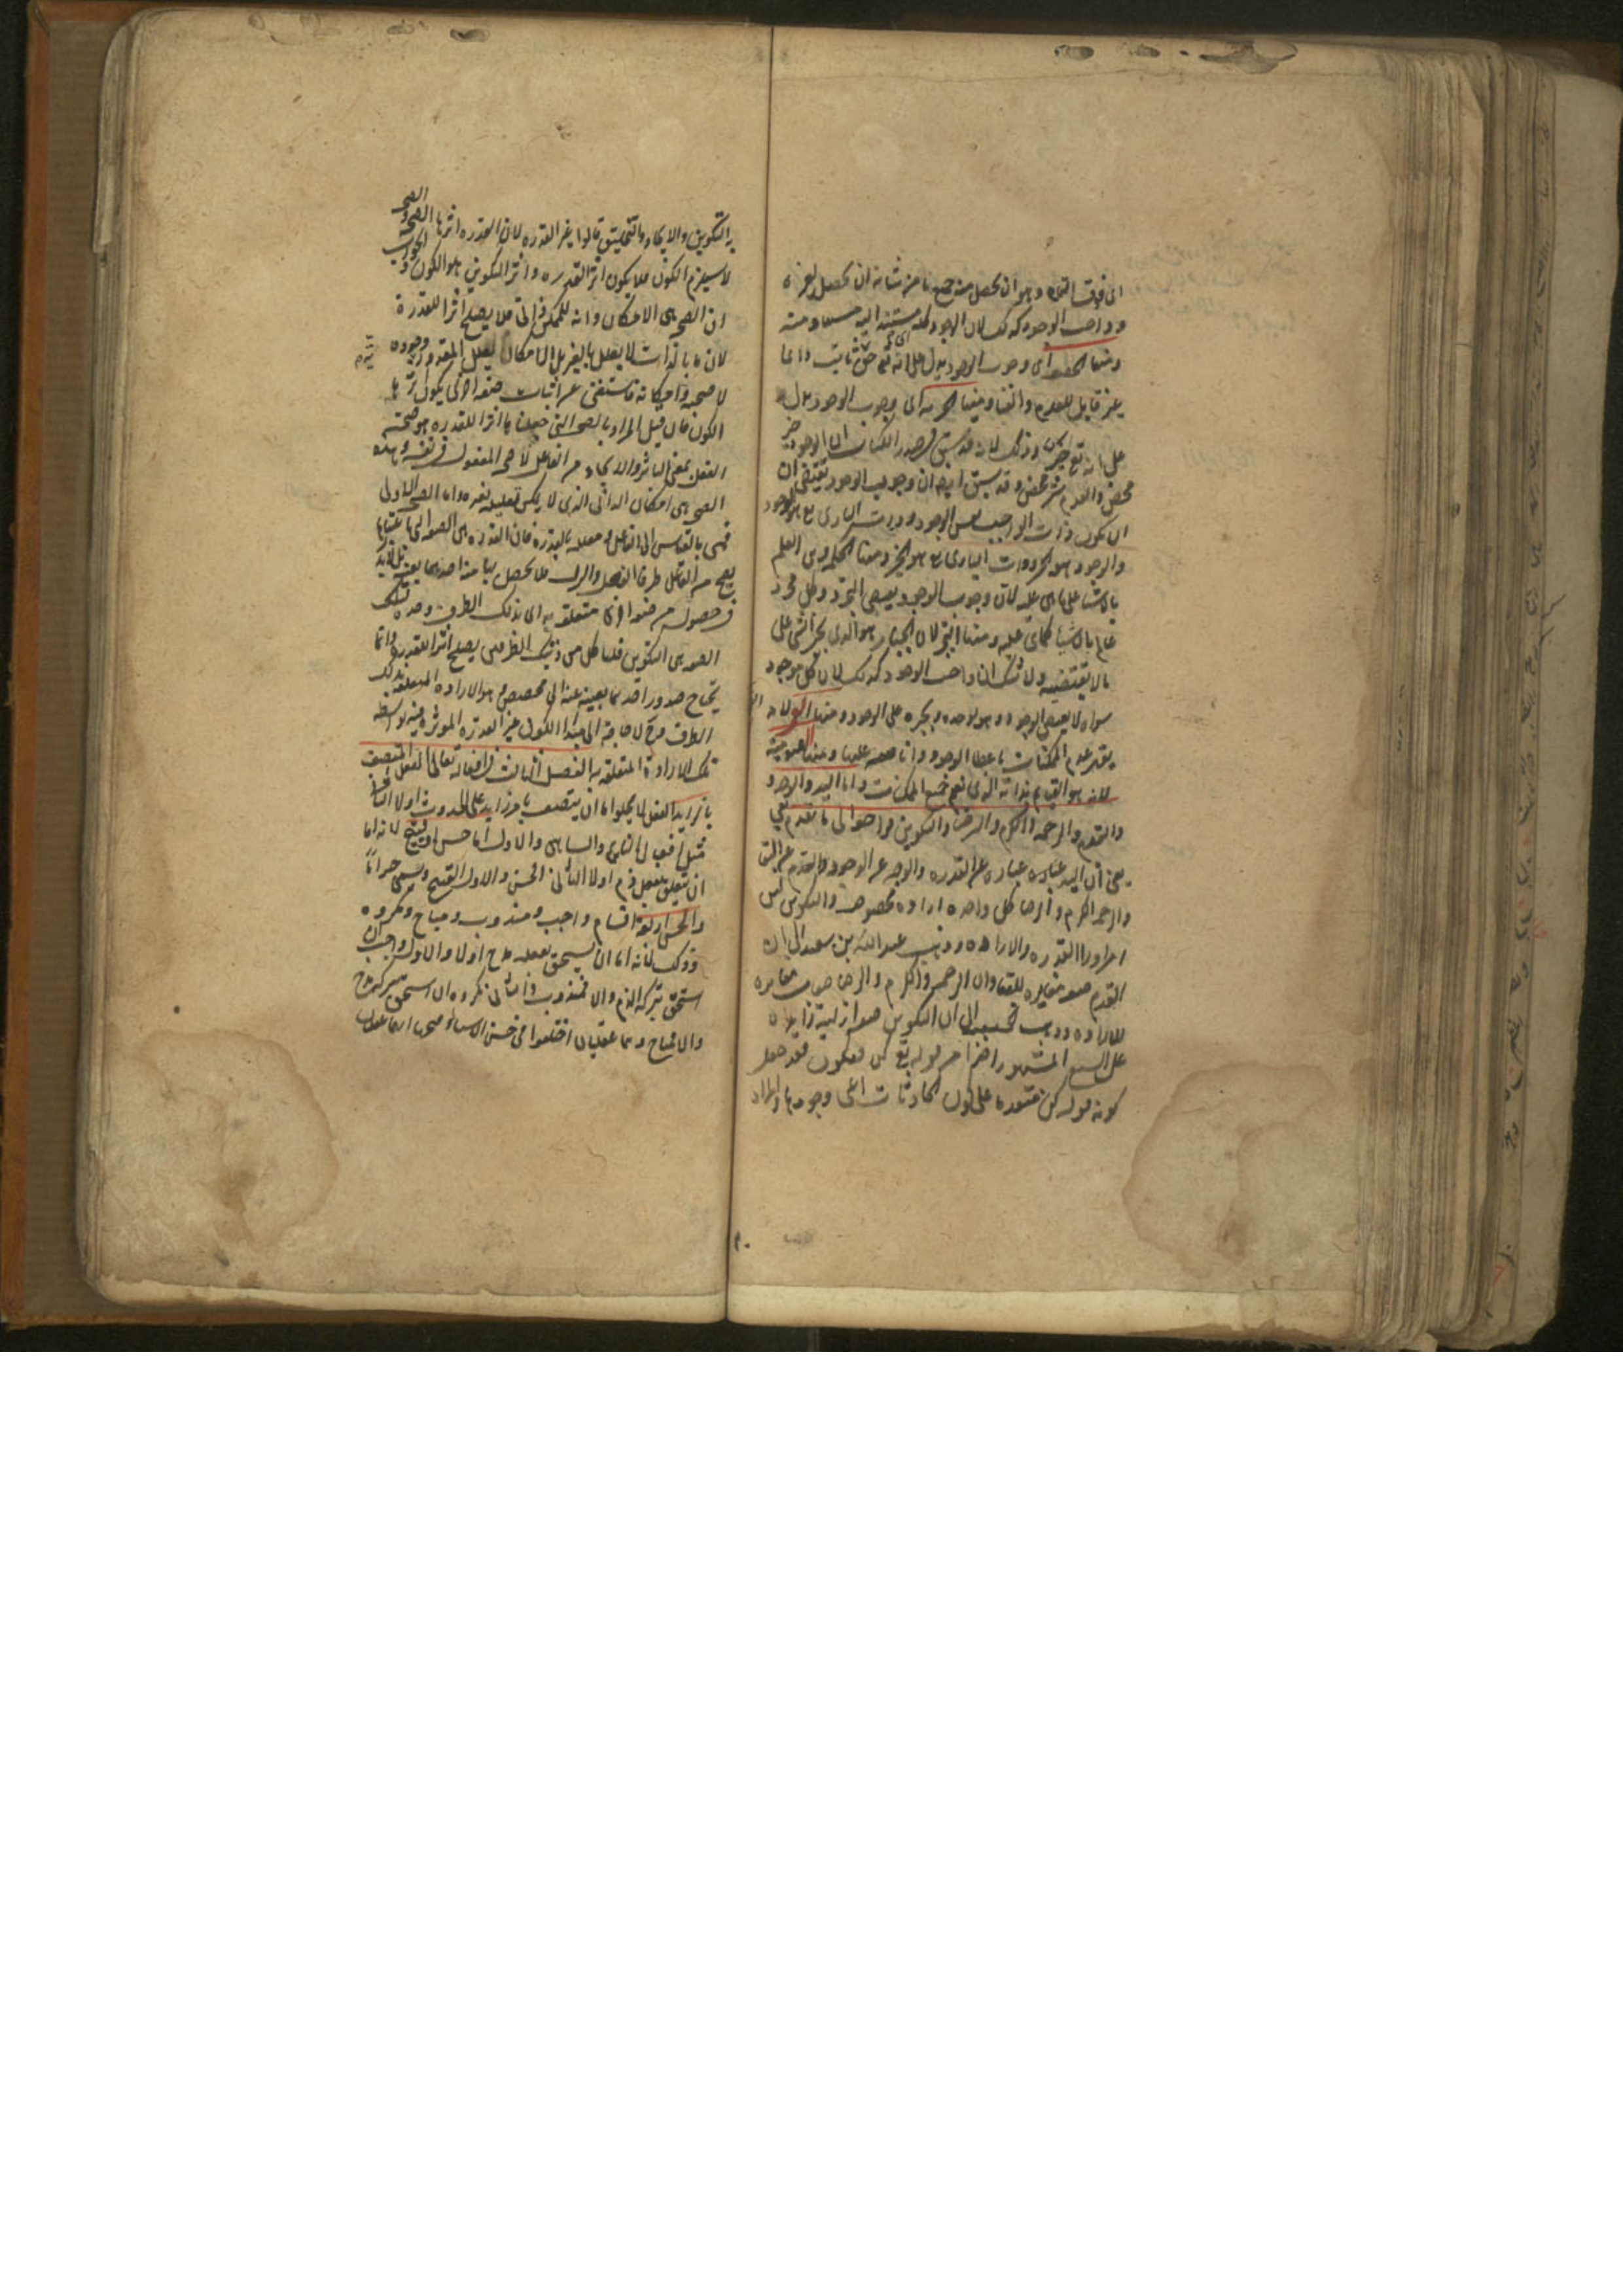 الى فوق التمام وهو ان يحصل منه جميع ما من شانه ان يحصل لغيره
وواجب الوجود كذلك لان الوجود كله مستند اليه مستفاد منه
ومنها الحق اى وجوب الوجود يدل على انه تع حق ثابت دائما
غير قابل للعدم والفناء ومنها الخيرية اى وجوب الوجود يدل
على انه تع خير وذلك لانه قد سبق فى صدر الكتاب ان الوجود خير
محض والعدم شر محض وقد سبق ايضا ان وجوب الوجود يقتضى ان
ان يكون ذات الواجب نفس الوجود وذات البارى تع هو الوجود
والوجود هو الخير وذات البارى تع هو الخير ومنها الحكمة وهى العلم
بالاشياء على ما هى عليه لان وجوب الوجود يقتضى التجرد وكل مجرد
عالم بالاشياء كما هى عليه ومنها التجبر لان الجبار هو الذى يجبر الشى على
ما لا يقتضيه ولا شك ان واجب الوجود كذلك لان كل موجود
سواه لا يقتضى الوجود وهو يوجده ويجبره على الوجود ومنها القهر لانه
يقهر عدم الممكنات باعطاء الوجود وافاضته عليها ومنها القيومية
لانه هو القيام بذاته الذى يقيم جميع الممكنات واما اليد والوجه
والقدم والرحمة والكرم والرضا والتكوين فراجعة الى ما تقدم يعنى
يعنى ان اليد عبارة عن القدرة والوجه عن الوجود والقدم عن البقاء
والرحمة والكرم والرضا كل واحدة ارادة مخصوصة والتكوين ليس
امرا وراء القدرة والارادة وذهب عبد الله بن سعيد الى ان
القدم صفة مغايرة للبقاء وان الرحمة والكرم والرضا صفات مغايرة
للارادة وذهب الى ان التكوين صفة ازلية زايدة
على السبع المشهورة اخذا من قوله تع كن فيكون فقد جعل
كونه قوله كن متقدما على كون الحادثات اعنى وجودها والمراد
به التكوين والايجاد والتخليق قالوا غير القدرة لان القدرة اثرها الصحة والصحة
لا يستلزم الكون فلا يكون اثر القدرة واثر التكوين هو الكون والجواب
ان الصحة هى الامكان وانه للممكن ذاتى فلا يصلح اثرا للقدرة
لان ما بالذات لا يعلل بالغير بل الامكان يعلل المقدورية وجوده
لا صحته وامكانه فاستغنى عن اثبات صفة اخرى يكون اثرها
الكون فان قيل المراد بالصحة التى جعلناها اثرا للقدرة هو صحة
الفعل بمعنى التاثير والايجاد من الفاعل لا صحة المفعول فى نفسه وهذه
الصحة هى امكان الذاتى الذى لا يمكن تعليله بغيره واما الصحة الاولى
فهى بالقياس الى الفاعل ومعللة بالقدرة فان القدرة هى الصفة التى باعتبارها
يصح من الفاعل طرفا الفعل والترك فلا يحصل بها منه احدهما بعينه بل لا بد
فى حصوله من صفة اخرى متعلقة به اى بذلك الطرف وحده فتلك
الصفة هى التكوين قلنا كل من ذينك الطرفين يصلح اثرا للقدرة وانما
يحتاج صدور احدهما بعينه عنه الى مخصص وهو الارادة المتعلقة بذلك
الطرف فح لا حاجة الى مبدا للكون غير القدرة المؤثرة فيه بواسطة
تلك الارادة المتعلقة به الفصل الثالث فى افعاله تعالى الفعل المتصف
بالزايد الفعل لا يخلو اما ان يتصف بامر زايد على الحدوث او لا الثانى
مثل افعال النائم والساهى والاول اما حسن او قبيح لانه اما
ان يتعلق بفعله ذم او لا الثانى الحسن والاول القبيح ويسمى حراما
والحسن اربعة اقسام واجب ومندوب ومباح ومكروه
وذلك لانه اما ان يستحق بفعله مدح او لا والاول واجب ان
استحق بتركه الذم والا فمندوب والثانى مكروه ان استحق بتركه مدح
والا فمباح وهما عقليان اختلفوا فى حسن الاشياء وقبحها انهما عقليان